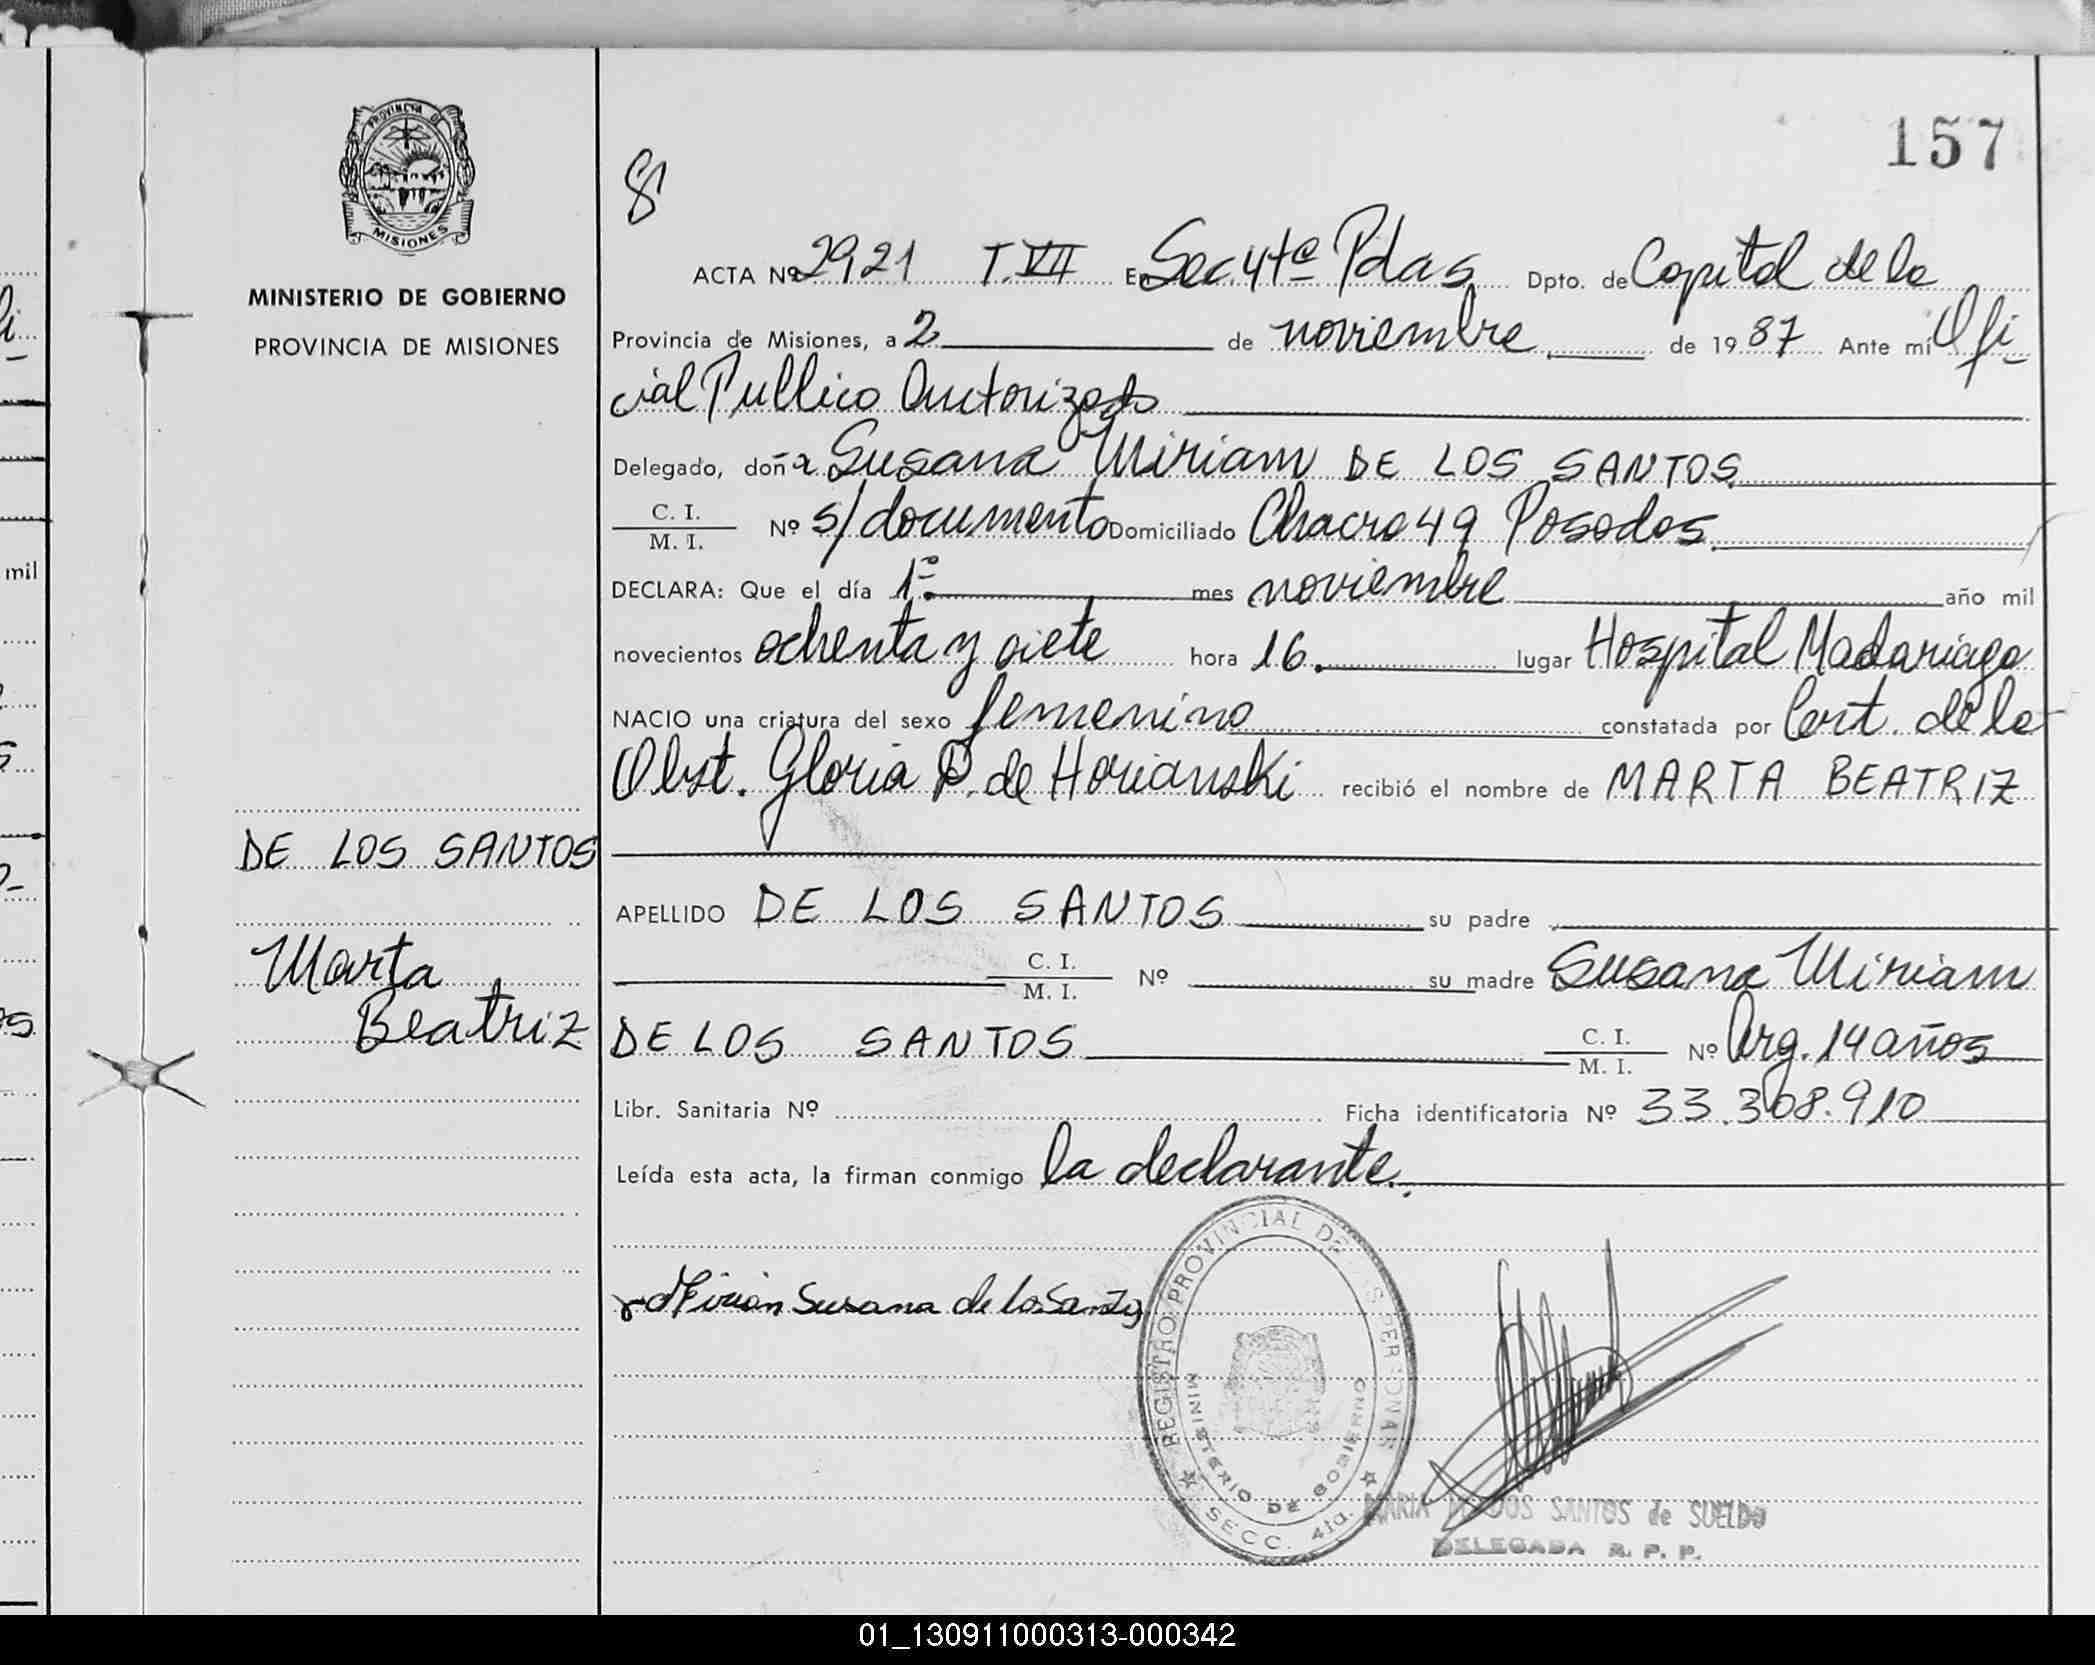 157
8
PROVINCIA DE
MISIONES
MINISTERIO DE GOBIERNO
PROVINCIA DE MISIONES
ACTA Nº 2921 T.VII En Sec. 4ta Pdas Dpto. de Capital de la
Provincia de Misiones, a 2 de noviembre de 1987 Ante mí Ofi-
cial Publico Autorizado
Delegado, doña Susana Miriam DE LOS SANTOS
C. I.
M. I. Nº s/documento Domiciliado Chacra 49 Posadas
DECLARA: Que el día 1º mes noviembre año mil
novecientos ochenta y siete hora 16. lugar Hospital Madariaga
NACIO una criatura del sexo femenino constatada por Cert. de la
Obst. Gloria P. de Horianski recibió el nombre de MARTA BEATRIZ
DE LOS SANTOS
APELLIDO DE LOS SANTOS su padre
C. I.
M. I. Nº su madre Susana Miriam
Marta
Beatriz
DE LOS SANTOS C. I.
M. I. Nº Arg. 14 años
Libr. Sanitaria Nº Ficha identificatoria Nº 33.308.910
Leída esta acta, la firman conmigo la declarante.
Mirian Susana de los Santos
REGISTRO PROVINCIAL DE LAS PERSONAS
MINISTERIO DE GOBIERNO
SECC. 4ta.
MARIA DOS SANTOS de SUELDO
DELEGADA R. P. P.
mil
01_130911000313-000342